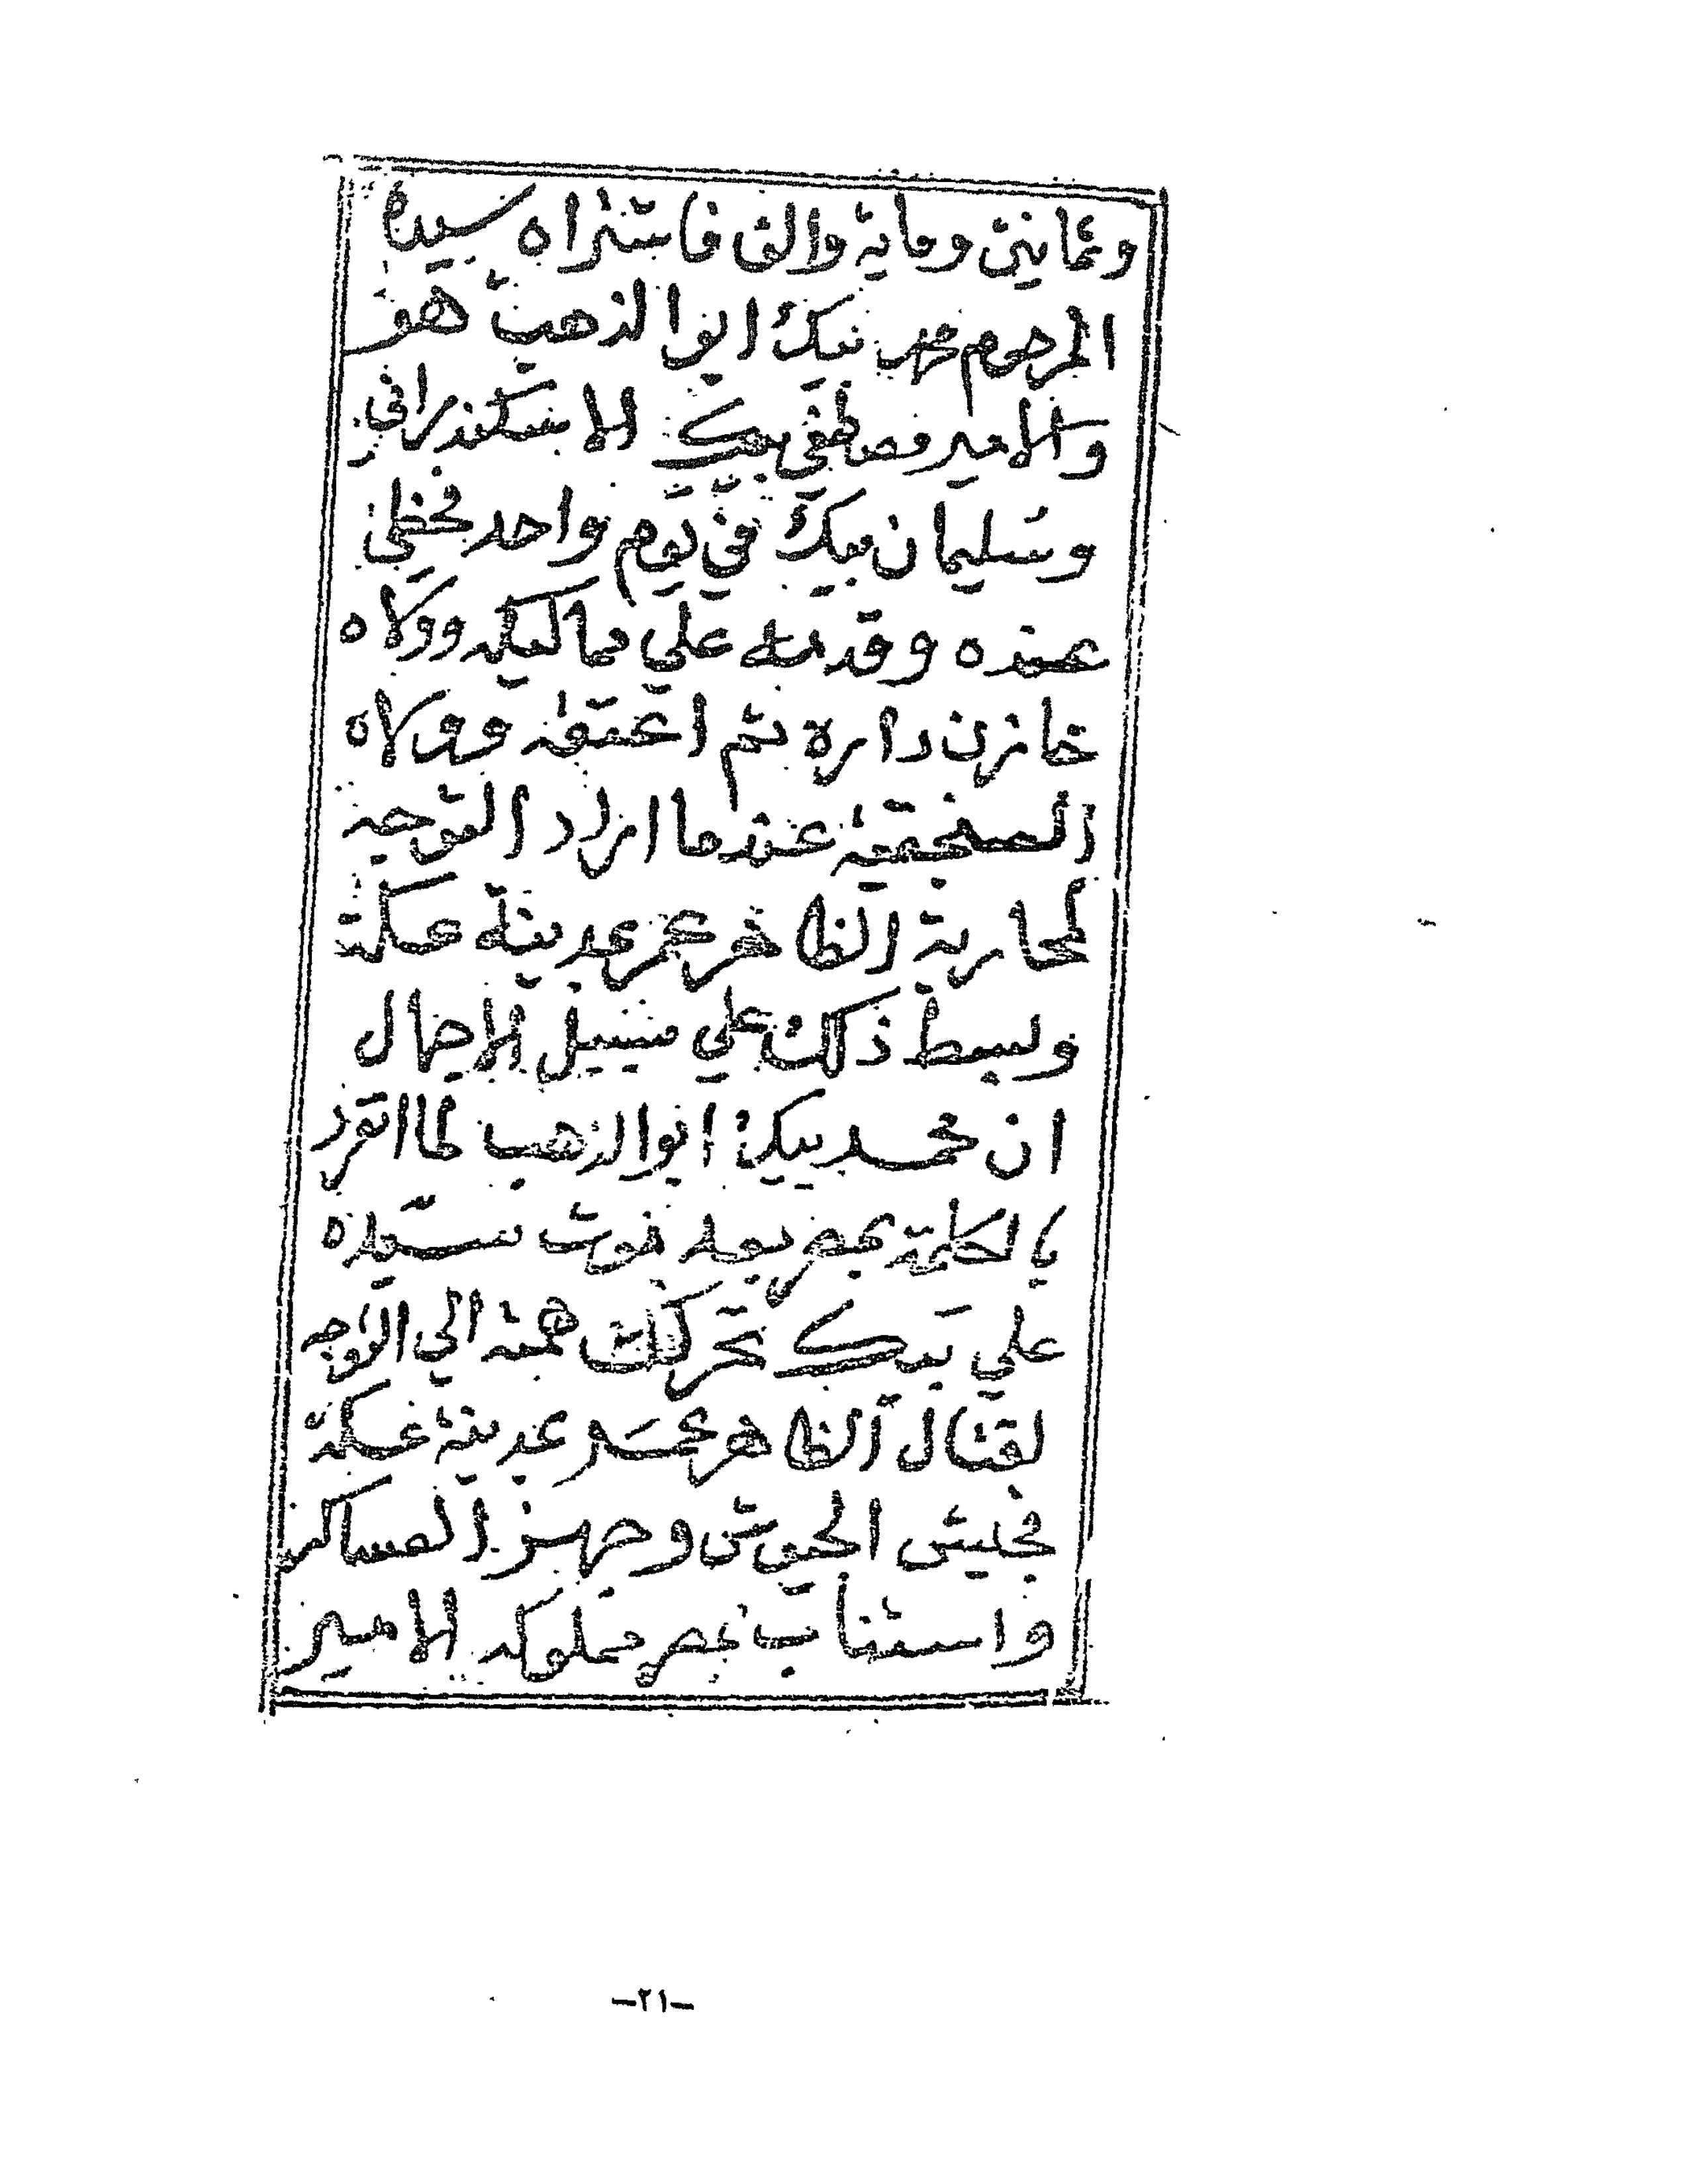 وثمانين وماية والف فاشتراه سيده
المرحوم محمد بيك ابوا الذهب هو
والامير مصطفي بيك الاسكندراني
وسليمان بيك في يوم واحد فحظي
عنده وقدمه علي مماليكه وولاه
خازن داره ثم اعتقه وولاه
الصنجقية عندما اراد التوجه
لمحاربة الظاهر عمر بمدينة عكة
وبسط ذلك علي سبيل الاجمال
ان محمد بيك ابوا الذهب لما انفرد
بالكلمة بمصر بعد موت سيده
علي بيك تحركت همته الي التوجه
لقتال الظاهر عمر بمدينة عكة
فجيش الجيوش وجهز العساكر
واستناب بمصر مملوكه الامير
-٢١-